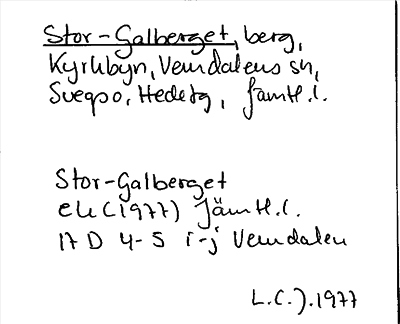 Stor-Galberget, berg,
Kyrkbyn, Vemdalens sn,
Svegso, Hedetg, Jämtl. l.
Stor-Galberget
ek (1977) Jämtl. l.
17 D 4-5 i-j Vemdalen
L.C.J. 1977